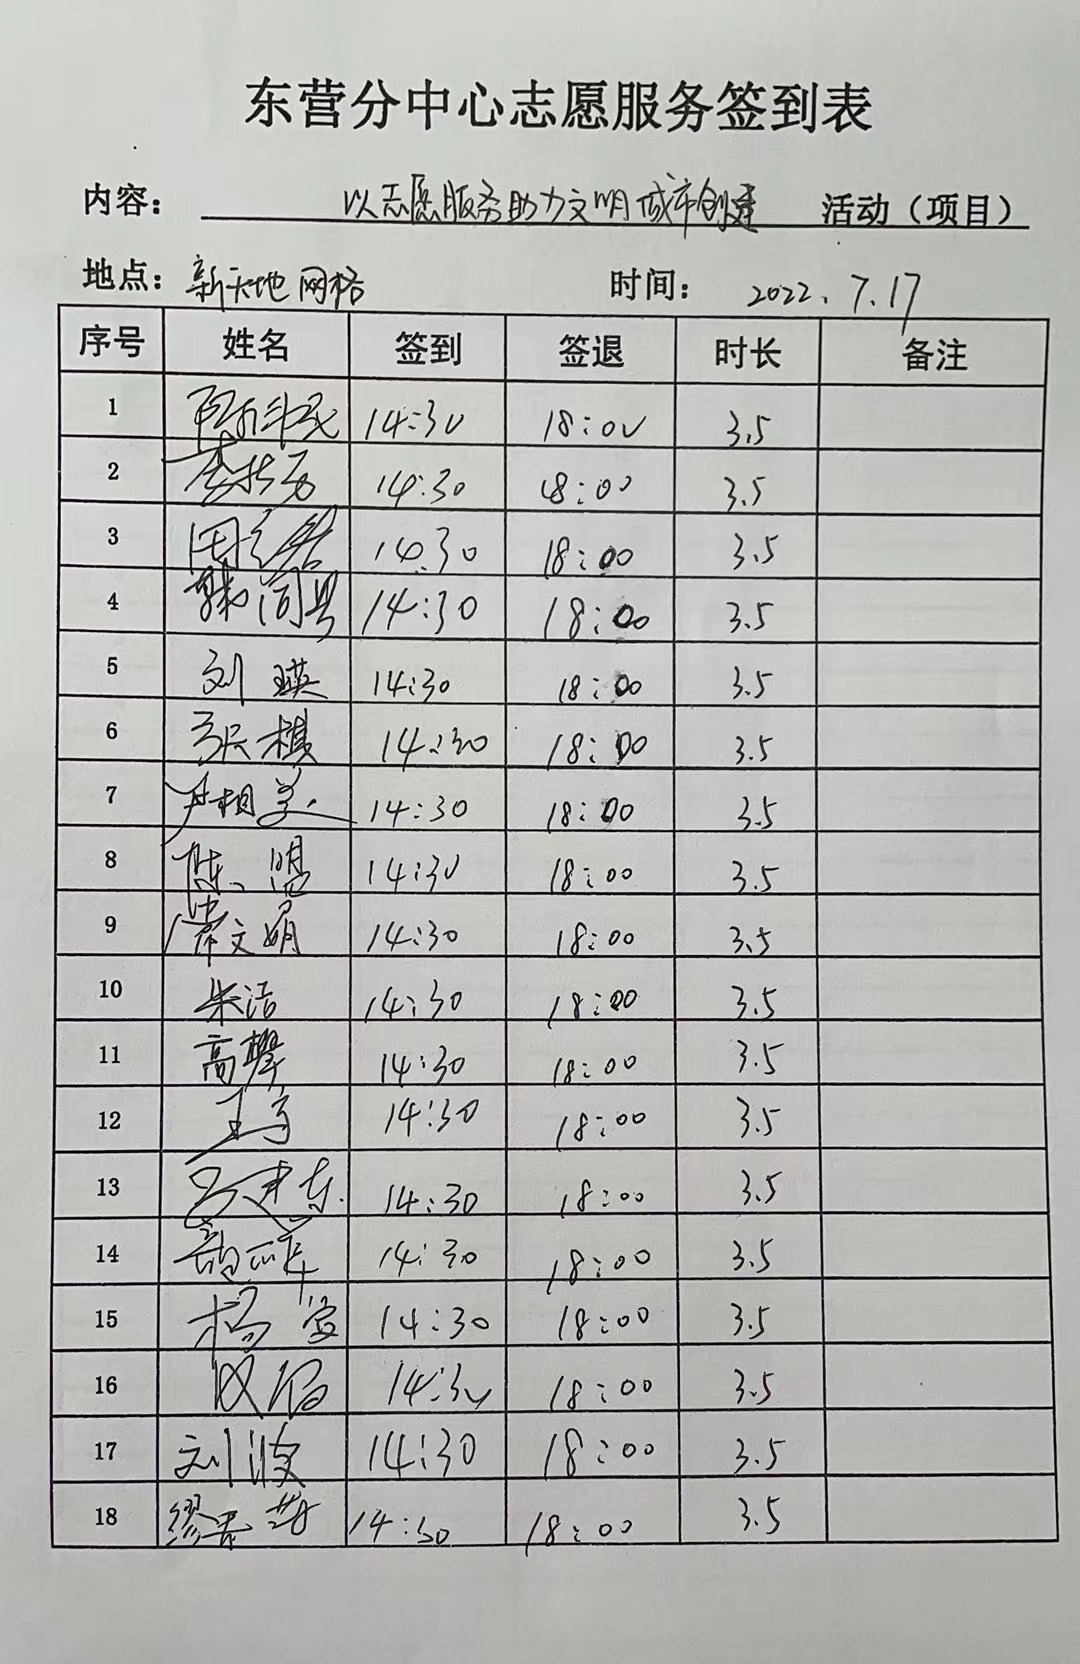 东营分中心志愿服务签到表
内容： 以志愿服务助力文明城市创建 活动（项目）
地点：新天地网格 时间： 2022.7.17
序号 姓名 签到 签退 时长 备注
1 14:30 18:00 3.5
2 14:30 18:00 3.5
3 14:30 18:00 3.5
4 14:30 18:00 3.5
5 刘瑛 14:30 18:00 3.5
6 张棋 14:30 18:00 3.5
7 尹相美 14:30 18:00 3.5
8 陈盟 14:30 18:00 3.5
9 文娟 14:30 18:00 3.5
10 朱洁 14:30 18:00 3.5
11 高攀 14:30 18:00 3.5
12 14:30 18:00 3.5
13 14:30 18:00 3.5
14 14:30 18:00 3.5
15 杨萱 14:30 18:00 3.5
16 14:30 18:00 3.5
17 刘波 14:30 18:00 3.5
18 14:30 18:00 3.5